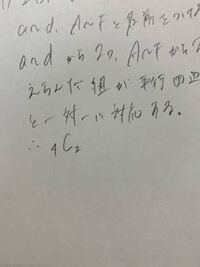 aからd, A〜Fと名前をつける
aからdから2つ, A〜Fから2
えらんだ組が平行四辺
と一対一に対応する。
∴ ₄C₂